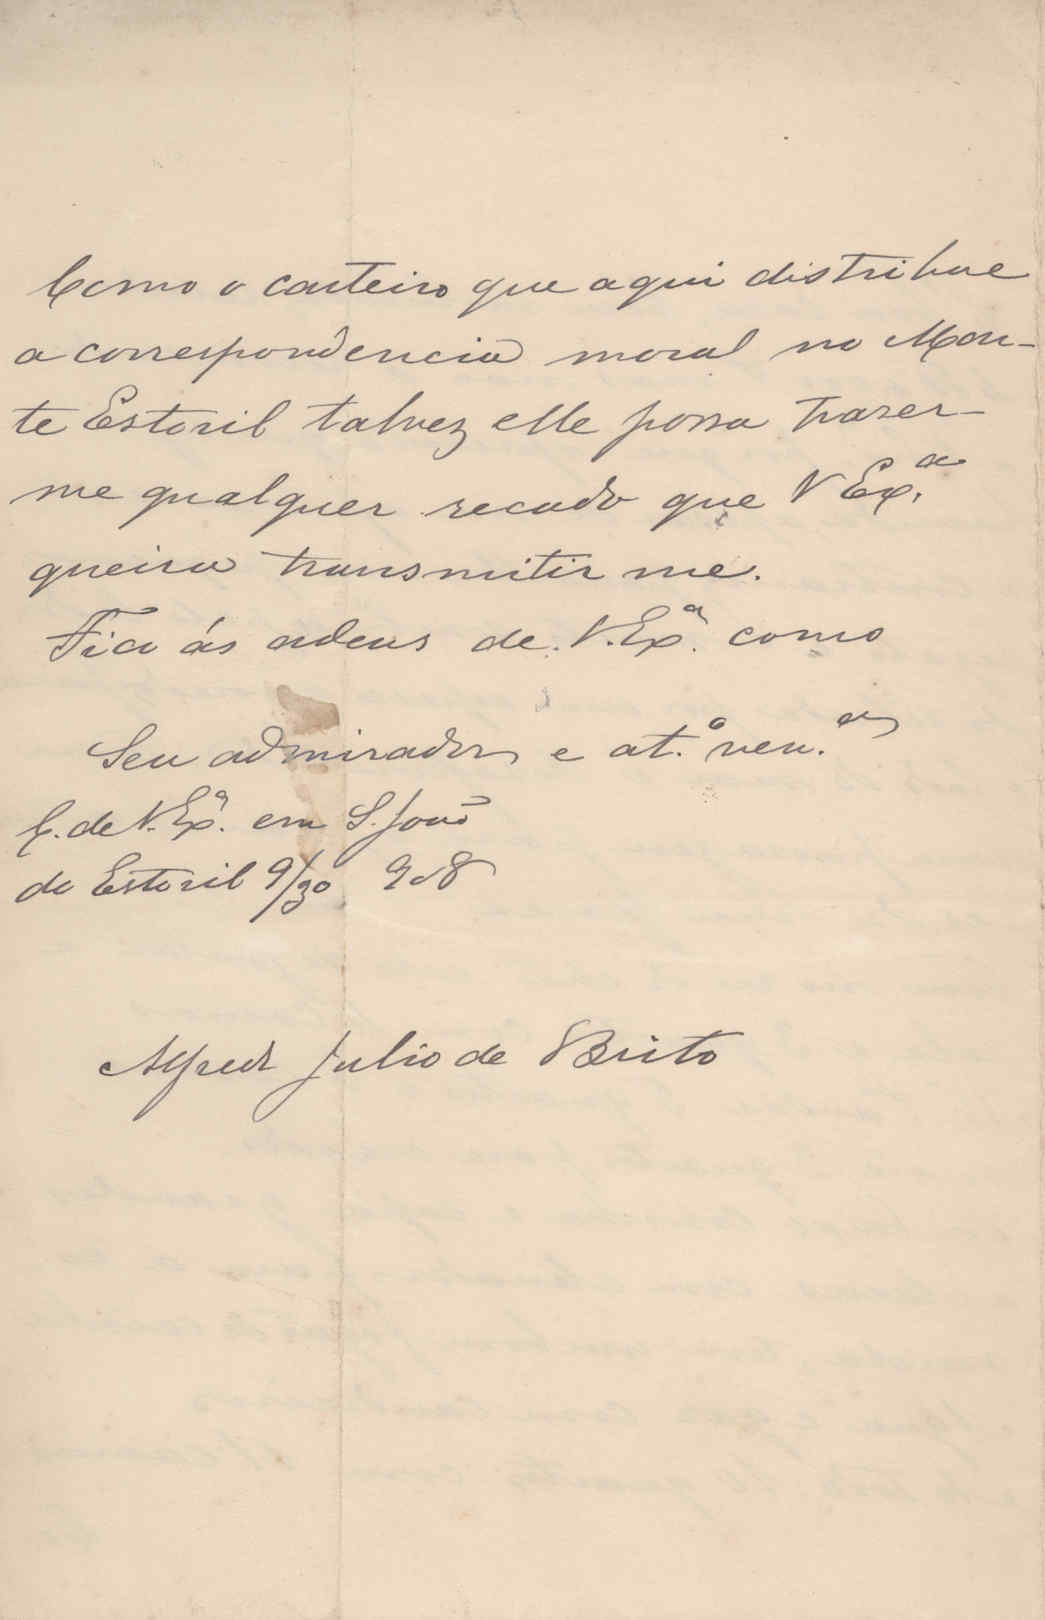 Como o carteiro que aqui distribue
a correspondencia moral no Mon-
te Estoril talvez elle possa trazer-
me qualquer recado que V Ex.ª
queira transmitir me.
Fico ás ordens de V. Exª. como
Seu admirador e at.º ven.or
C. de V. Exª. em S. João
do Estoril 9/30 908
Alfredo Julio de Brito